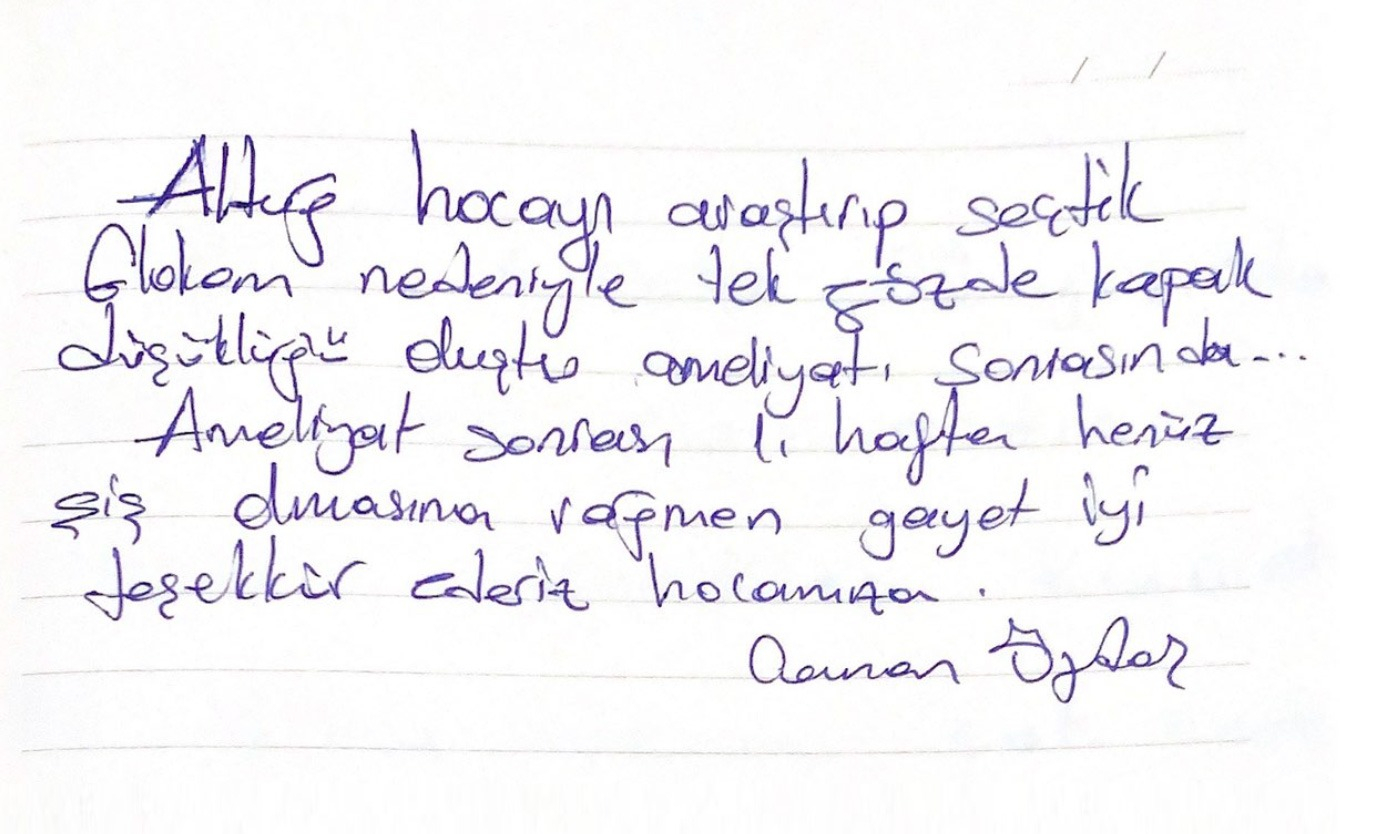 Altuğ hocayı araştırıp seçtik
Glokom nedeniyle tek gözde kapak
düşüklüğü oluştu ameliyatı sonrasında...
Ameliyat sonrası 1. hafta henüz
şiş olmasına rağmen gayet iyi
teşekkür ederiz hocamıza.